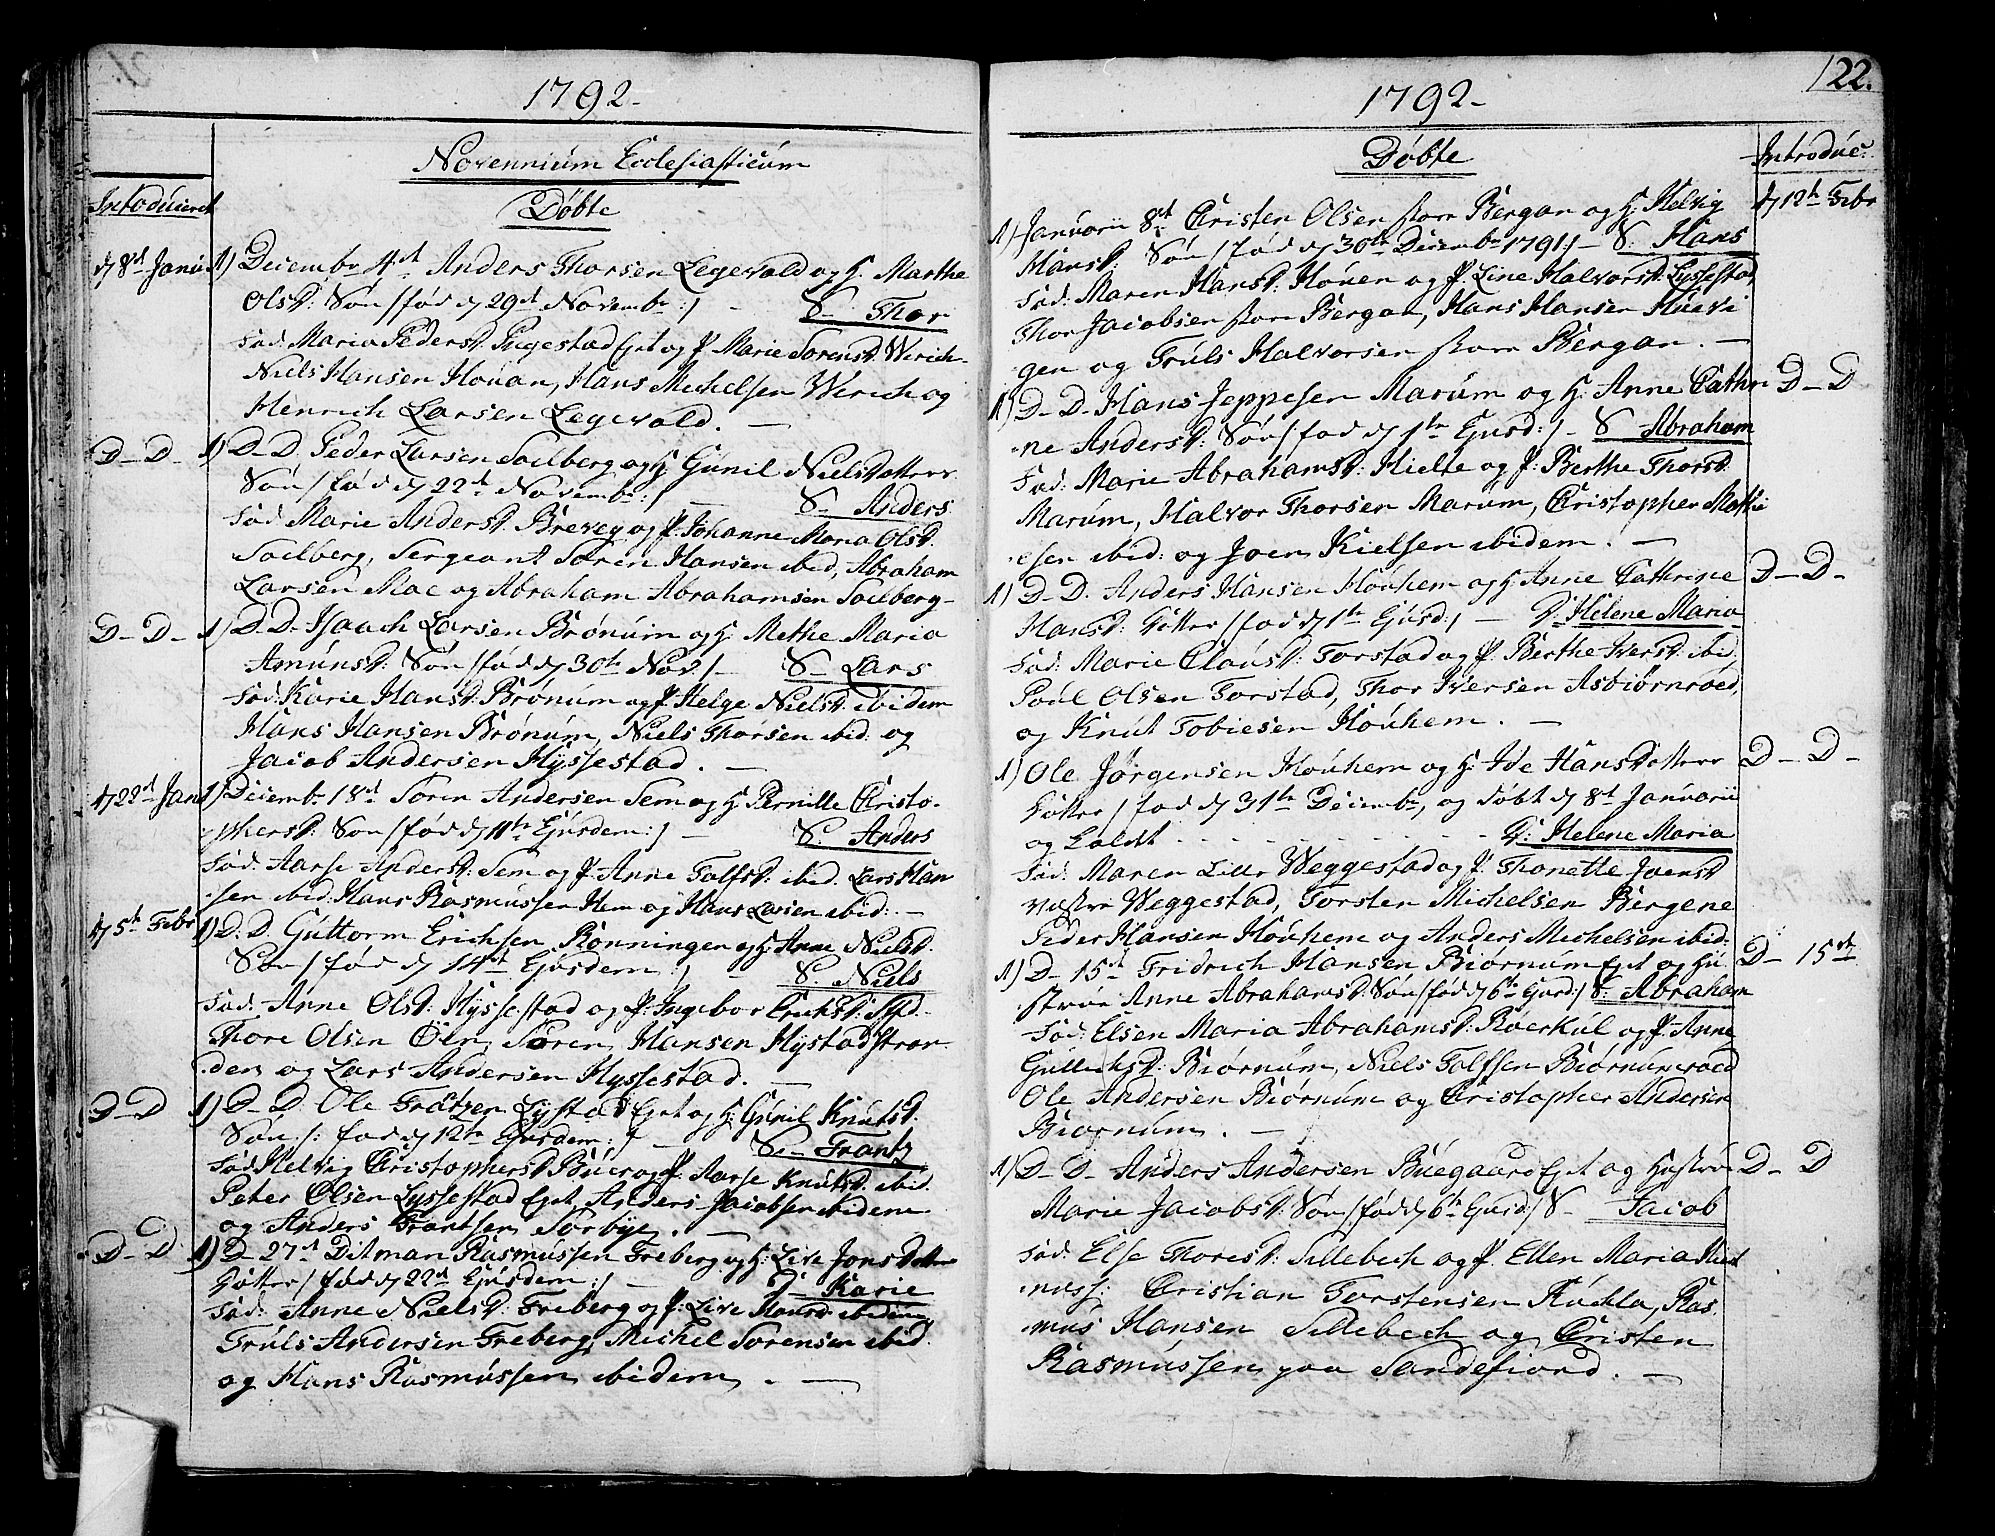 1792-
Novennium Ecclesiasticum
Introduceret
Döbte
d 8de Janu 1) Decembr 4de Anders Thorsen Legevald og H: Marthe
Olsd: Sön /: föd d 29de Novembr :/ - S- Thor
Fad: Maria Pedersd: Pugestad Eget og P. Marie Sörensd: Wirich
Niels Hansen Houan, Hans Michelsen Wirich og
Henrich Larsen Legevald. -
D- D- 1) D- D. Peder Larsen Soelberg og H. Gunil Nielsdatters
Sön /: föd d 22de Novembr :/ - S- Anders
Fad: Marie Andersd: Breveg og P: Johanne Maria Olsd.
Soelberg, Sergeant Sören Hansen ibid, Abraham
Larsen Moe og Abraham Abrahamsen Soelberg-
D- D- 1) D. D. Isaach Larsen Brönum og H. Methe Maria
Amunsd: Sön /: föd d 30te Nov :/ - S- Lars
Fad: Karie Hansd: Brönum og P. Helge Nielsd: ibidem
Hans Hansen Brönum, Niels Thorsen ibid. og
Jacob Andersen Hyssestad. -
d 22de Jan 1) Decembr 18de Sören Andersen Sem og H Pernille Christo-
phersd: Sön /: föd d 11te Ejusdem :/ - S. Anders
Fad: Aarse Andersd: Sem og P. Anne Tolfsd: ibid. Lars Han
sen ibid. Hans Rasmussen Hem og Hans Larsen ibid: -
d 5te Febr 1) D. D. Guttorm Erichsen Rönningen og H Anne Nielsd.
Sön /: föd d 14de Ejusdem :/ - S. Niels
Fad: Anne Olsd: Hyssestad og P: Ingebor Erichsd:
Thore Olsen Öln, Sören Hansen Hystadstran-
den og Lars Andersen Hyssestad. -
D- D 1) D- D. Ole Frötzen Lystad Eget og H: Gunil Knutsd.
Sön /: föd d 12te Ejusdem :/ - S- Frantz
Fad: Helvig Christophersd: Buer og P. Aarse Knutsd: ibid.
Peter Olsen Lyssestad Eget, Anders Jacobsen ibidem
og Anders Frantsen Sörbye. -
D- D 1) D- 27de Ditman Rasmussen Freberg og H: Live Jonsdatters
Dotter /: föd d 22de Ejusdem :/ - D- Karie
Fad: Anne Nielsd: Freberg og P: Live Hansd: ibidem
Truls Andersen Freberg, Michel Sörensen ibid.
og Hans Rasmussen ibidem. -
122.
1792-
Döbte
Introduc:
1) Januarii 8de Christen Olsen store Bergan og H. Helvig d 12te Febr
Hansd: Sön /: föd d 30te Decembr 1791 :/ - S. Hans
Fad: Maren Hansd: Houen og P. Line Halvorsd: Lyssestad
Thor Jacobsen store Bergan, Hans Hansen Huevi
gen og Truls Halvorsen store Bergan. -
1) D- D. Hans Jeppesen Marum og H: Anne Cathri D- D
ne Andersd: Sön /: föd d 1te Ejusd :/ - S Abraham
Fad: Marie Abrahamsd: Hielte og P: Berthe Thorsd.
Marum, Halvor Thorsen Marum, Christopher Mathi
esen ibid: og Joen Kielsen ibidem. -
1) D- D. Anders Hansen Houhem og H Anne Cathrine D- D-
Hansd: Dotter /: föd d 1te Ejusd :/ - D. Helene Maria
Fad: Marie Clausd: Torstad og P. Berthe Iversd: ibid.
Poul Olsen Torstad, Thor Iversen Asbiörnröed
og Knut Tobiesen Houhem. -
1) Ole Jörgensen Houhem og H: Ide Hansdatters D- D-
Dotter /: föd d 31te Decembr, og döbt d 8de Januarii
og Kaldt - - - D: Helene Maria
Fad: Maren Lille Weggestad og P. Thonette Joensd
västre Weggestad, Torsten Michelsen Bergene
Peder Hansen Houhem og Anders Michelsen ibid:
1) D- 15de Fridrich Hansen Biörnum Eget og Hu- D- 15de
strue Anne Abrahamsd: Sön /: föd d 6te Ejusd :/ S. Abraham
Fad: Elsen Maria Abrahamsd: Röerkul og P. Anne
Gulleichsd: Biörnum, Niels Tolfsen Biörnumröed
Ole Andersen Biörnum og Christopher Andersen
Biörnum. -
1) D- D- Anders Andersen Buegaard Eget og Hustrue D- D
Marie Jacobsd: Sön /: föd d 6te Ejusd :/ S- Jacob
Fad: Else Thoresd: Sillebech og P. Ellen Maria
muss: Christian Torstensen Röckla, Ras
mus Hansen Sillebech og Christen
Rasmussen paa Sandefiord. -